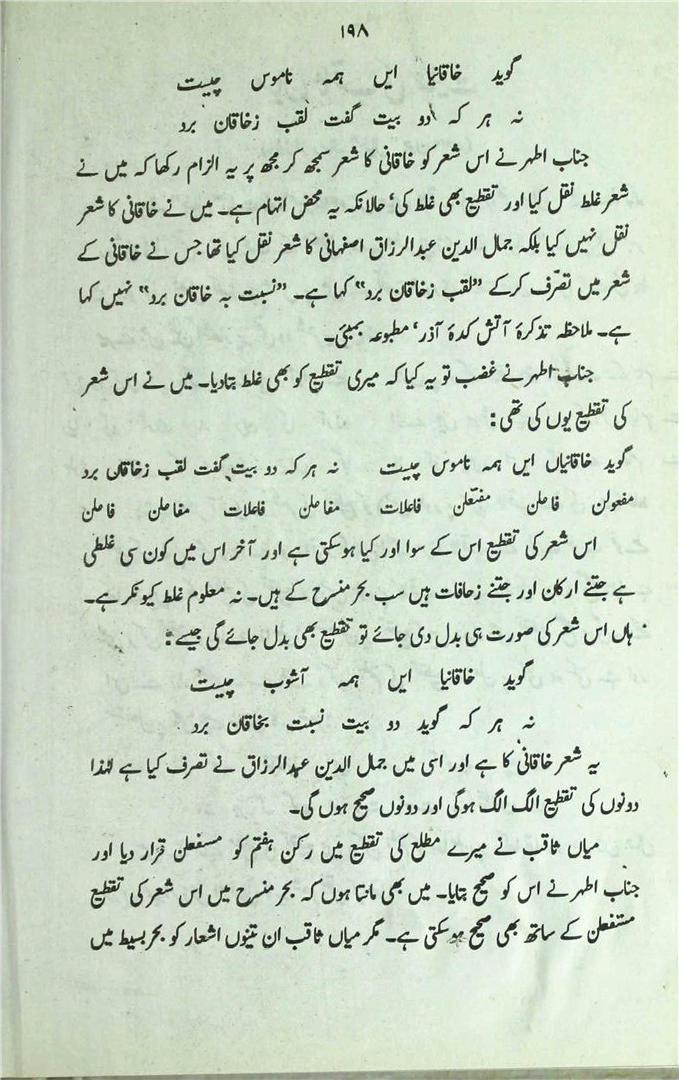 ۱۹۸
گوید خاقانیا ایں ہمہ ناموس چیست
نہ ہر کہ دو بیت گفت لقب زخاقان برد
جناب اطہر نے اس شعر کو خاقانی کا شعر سمجھ کر مجھ پر یہ الزام رکھا کہ میں نے
شعر غلط نقل کیا اور تقطیع بھی غلط کی، حالانکہ یہ محض اتہام ہے۔ میں نے خاقانی کا شعر
نقل نہیں کیا بلکہ جمال الدین عبدالرزاق اصفہانی کا شعر نقل کیا تھا جس نے خاقانی کے
شعر میں تصرّف کرکے ”لقب زخاقان برد“ کہا ہے۔ ”نسبت بہ خاقان برد“ نہیں کہا
ہے۔ ملاحظہ تذکرۂ آتش کدۂ آذر، مطبوعہ بمبئی۔
جناب اطہر نے غضب تو یہ کیا کہ میری تقطیع کو بھی غلط بتادیا۔ میں نے اس شعر
کی تقطیع یوں کی تھی:
گوید خاقانیاں ایں ہمہ ناموس چیست نہ ہر کہ دو بیت گفت لقب زخاقان برد
مفعولن فاعلن مفتعلن فاعلات مفاعلن فاعلات مفاعلن فاعلن
اس شعر کی تقطیع اس کے سوا اور کیا ہوسکتی ہے اور آخر اس میں کون سی غلطی
ہے جتنے ارکان اور جتنے زحافات ہیں سب بحر منسرح کے ہیں۔ نہ معلوم غلط کیونکر ہے۔
ہاں اس شعر کی صورت ہی بدل دی جائے تو تقطیع بھی بدل جائے گی جیسے:
گوید خاقانیا ایں ہمہ آشوب چیست
نہ ہر کہ گوید دو بیت نسبت بخاقان برد
یہ شعر خاقانی کا ہے اور اسی میں جمال الدین عبدالرزاق نے تصرف کیا ہے لہٰذا
دونوں کی تقطیع الگ الگ ہوگی اور دونوں صحیح ہوں گی۔
میاں ثاقب نے میرے مطلع کی تقطیع میں رکن ہفتم کو مسفعلن قرار دیا اور
جناب اطہر نے اس کو صحیح بتایا۔ میں بھی مانتا ہوں کہ بحر منسرح میں اس شعر کی تقطیع
مستفعلن کے ساتھ بھی صحیح ہوسکتی ہے۔ مگر میاں ثاقب ان تینوں اشعار کو بحر بسیط میں